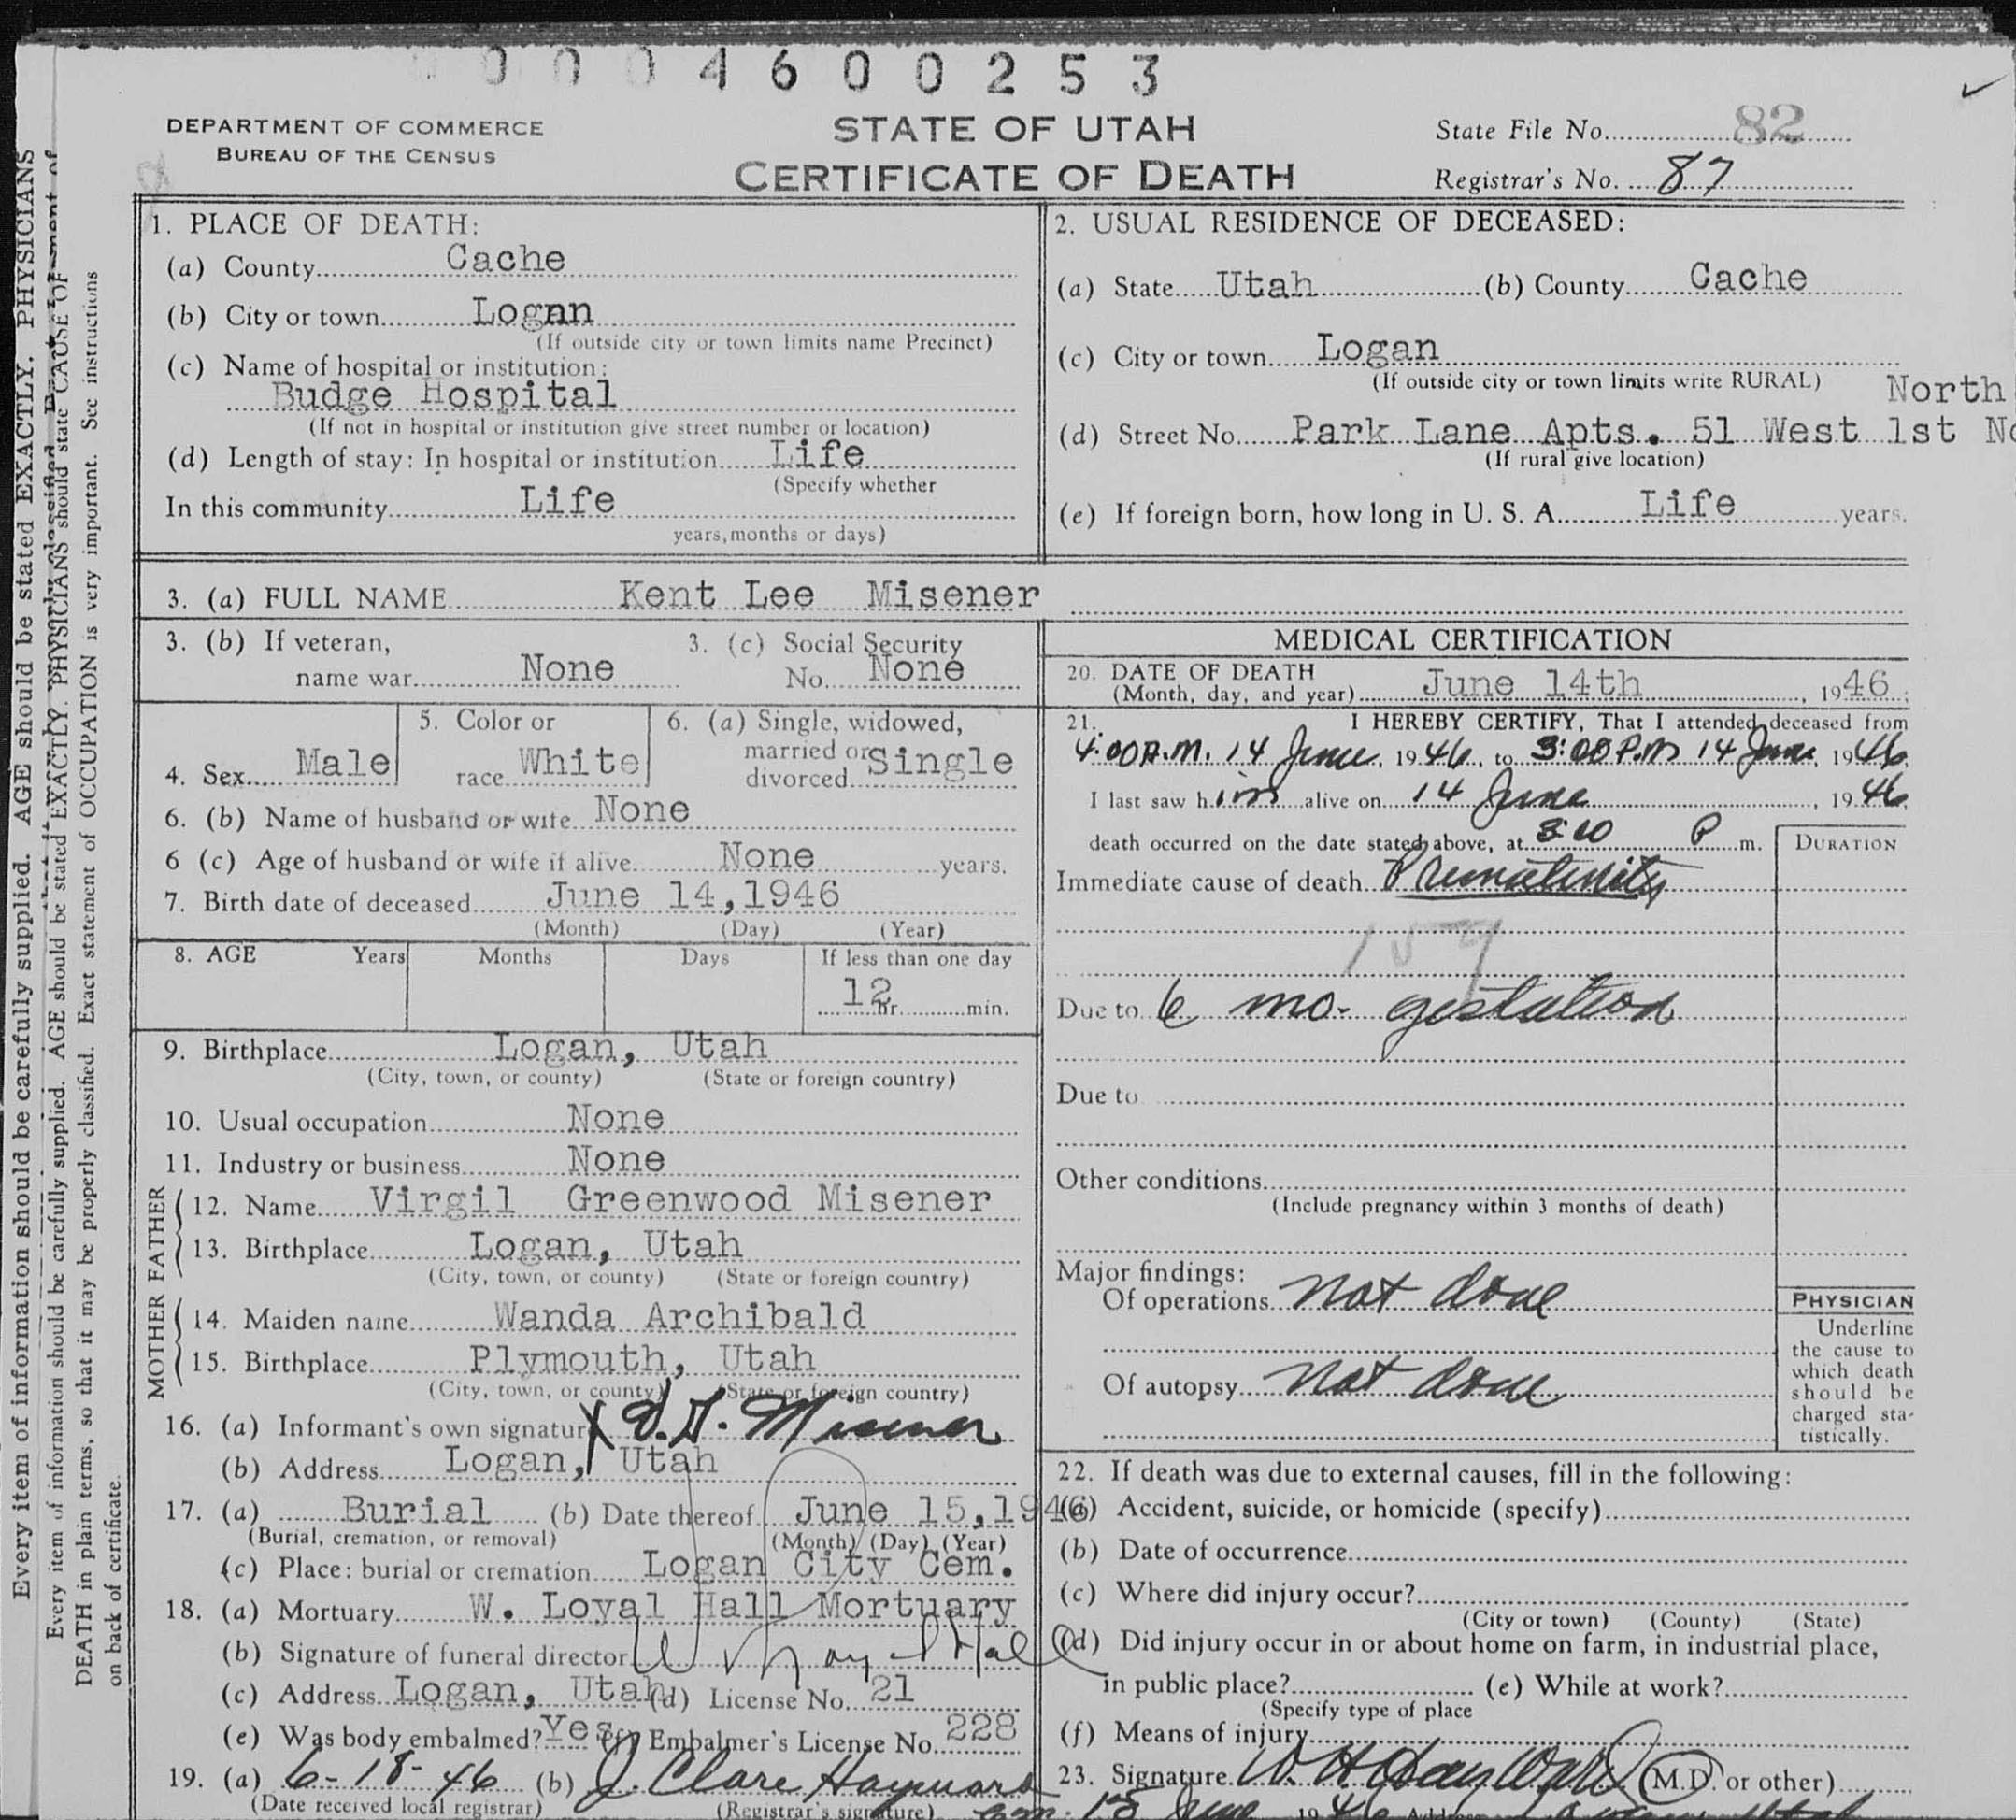 0004600253
DEPARTMENT OF COMMERCE
BUREAU OF THE CENSUS
STATE OF UTAH
CERTIFICATE OF DEATH
State File No. 82
Registrar's No. 87
1. PLACE OF DEATH:
(a) County Cache
(b) City or town Logan
(If outside city or town limits name Precinct)
(c) Name of hospital or institution:
Budge Hospital
(If not in hospital or institution give street number or location)
(d) Length of stay: In hospital or institution Life
(Specify whether
In this community Life
years, months or days)
2. USUAL RESIDENCE OF DECEASED:
(a) State Utah (b) County Cache
(c) City or town Logan
(If outside city or town limits write RURAL) North
(d) Street No. Park Lane Apts. 51 West 1st No
(If rural give location)
(e) If foreign born, how long in U. S. A. Life years.
3. (a) FULL NAME Kent Lee Misener
3. (b) If veteran, name war None
3. (c) Social Security No. None
4. Sex Male
5. Color or race White
6. (a) Single, widowed, married or divorced Single
6. (b) Name of husband or wife None
6 (c) Age of husband or wife if alive None years.
7. Birth date of deceased June 14,1946
(Month) (Day) (Year)
8. AGE Years Months Days If less than one day
12 hr. min.
9. Birthplace Logan, Utah
(City, town, or county) (State or foreign country)
10. Usual occupation None
11. Industry or business None
FATHER
12. Name Virgil Greenwood Misener
13. Birthplace Logan, Utah
(City, town, or county) (State or foreign country)
MOTHER
14. Maiden name Wanda Archibald
15. Birthplace Plymouth, Utah
(City, town, or county) (State or foreign country)
16. (a) Informant's own signature X V. G. Misener
(b) Address Logan, Utah
17. (a) Burial (b) Date thereof June 15,1946
(Burial, cremation, or removal) (Month) (Day) (Year)
(c) Place: burial or cremation Logan City Cem.
18. (a) Mortuary W. Loyal Hall Mortuary
(b) Signature of funeral director W Loyal Hall
(c) Address Logan, Utah (d) License No. 21
(e) Was body embalmed? Yes (f) Embalmer's License No. 228
19. (a) 6-18-46 (b) J. Clare Hayward
(Date received local registrar) (Registrar's signature)
MEDICAL CERTIFICATION
20. DATE OF DEATH
(Month, day, and year) June 14th, 1946
21. I HEREBY CERTIFY, That I attended deceased from
4:00 A.M. 14 June, 1946, to 3:00 P.M 14 June, 1946
I last saw him alive on 14 June, 1946
death occurred on the date stated above, at 3:10 P m.
DURATION
Immediate cause of death Prematurity
159
Due to 6 mo. gestation
Due to
Other conditions
(Include pregnancy within 3 months of death)
Major findings:
Of operations not done
Of autopsy not done
PHYSICIAN
Underline
the cause to
which death
should be
charged sta-
tistically.
22. If death was due to external causes, fill in the following:
(a) Accident, suicide, or homicide (specify)
(b) Date of occurrence
(c) Where did injury occur?
(City or town) (County) (State)
(d) Did injury occur in or about home on farm, in industrial place,
in public place? (e) While at work?
(Specify type of place
(f) Means of injury
23. Signature (M.D. or other)
15 June 1946
Every item of information should be carefully supplied. AGE should be stated EXACTLY. PHYSICIANS
Every item of information should be carefully supplied. AGE should be stated EXACTLY. PHYSICIANS should state CAUSE OF
DEATH in plain terms, so that it may be properly classified. Exact statement of OCCUPATION is very important. See instructions
on back of certificate.